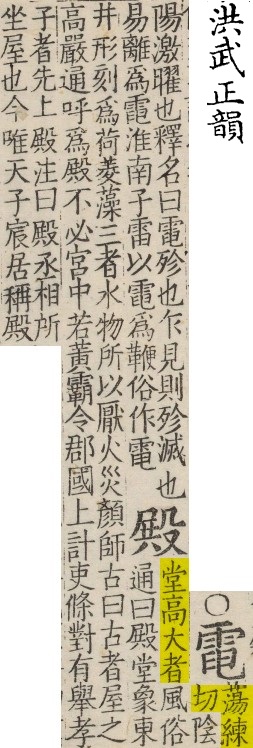 洪武正韻
○電
蕩練
切陰
陽激曜也釋名曰電殄也乍見則殄滅也
易離爲電淮南子雷以電爲鞭俗作電
殿
堂高大者風俗
通曰殿堂象東
井形刻爲荷菱藻三者水物所以厭火災顏師古曰古者屋之
高嚴通呼爲殿不必宮中若黃霸令郡國上計吏條對有舉孝
子者先上殿注曰殿丞相所
坐屋也今唯天子宸居稱殿